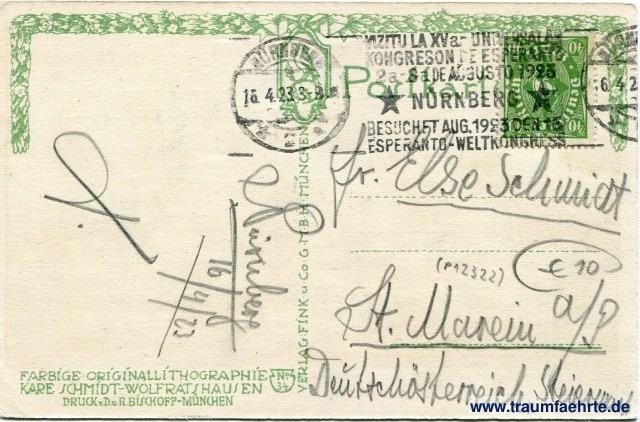 VIZITU LA XVan UNIVERSALAN
KONGRESON DE ESPERANTO
2a-8a DE AUGUSTO 1923
★ NÜRNBERG ★
BESUCHET AUG. 1923 DEN 15.
ESPERANTO-WELTKONGRESS
NÜRNBERG
16.4.23. 3-
Postkarte
40
Fr. Else Schmidt
(P12322)
€ 10
St. Marein a/P
Deutschösterreich Steiermark
Nürnberg
16/4/23
VERLAG·FINK u. Co·G·M·B·H·MÜNCHEN
FARBIGE·ORIGINALLITHOGRAPHIE
KARE SCHMIDT-WOLFRATSHAUSEN
DRUCK v. D. u. R. BISCHOFF-MÜNCHEN
No 34
www.traumfaehrte.de